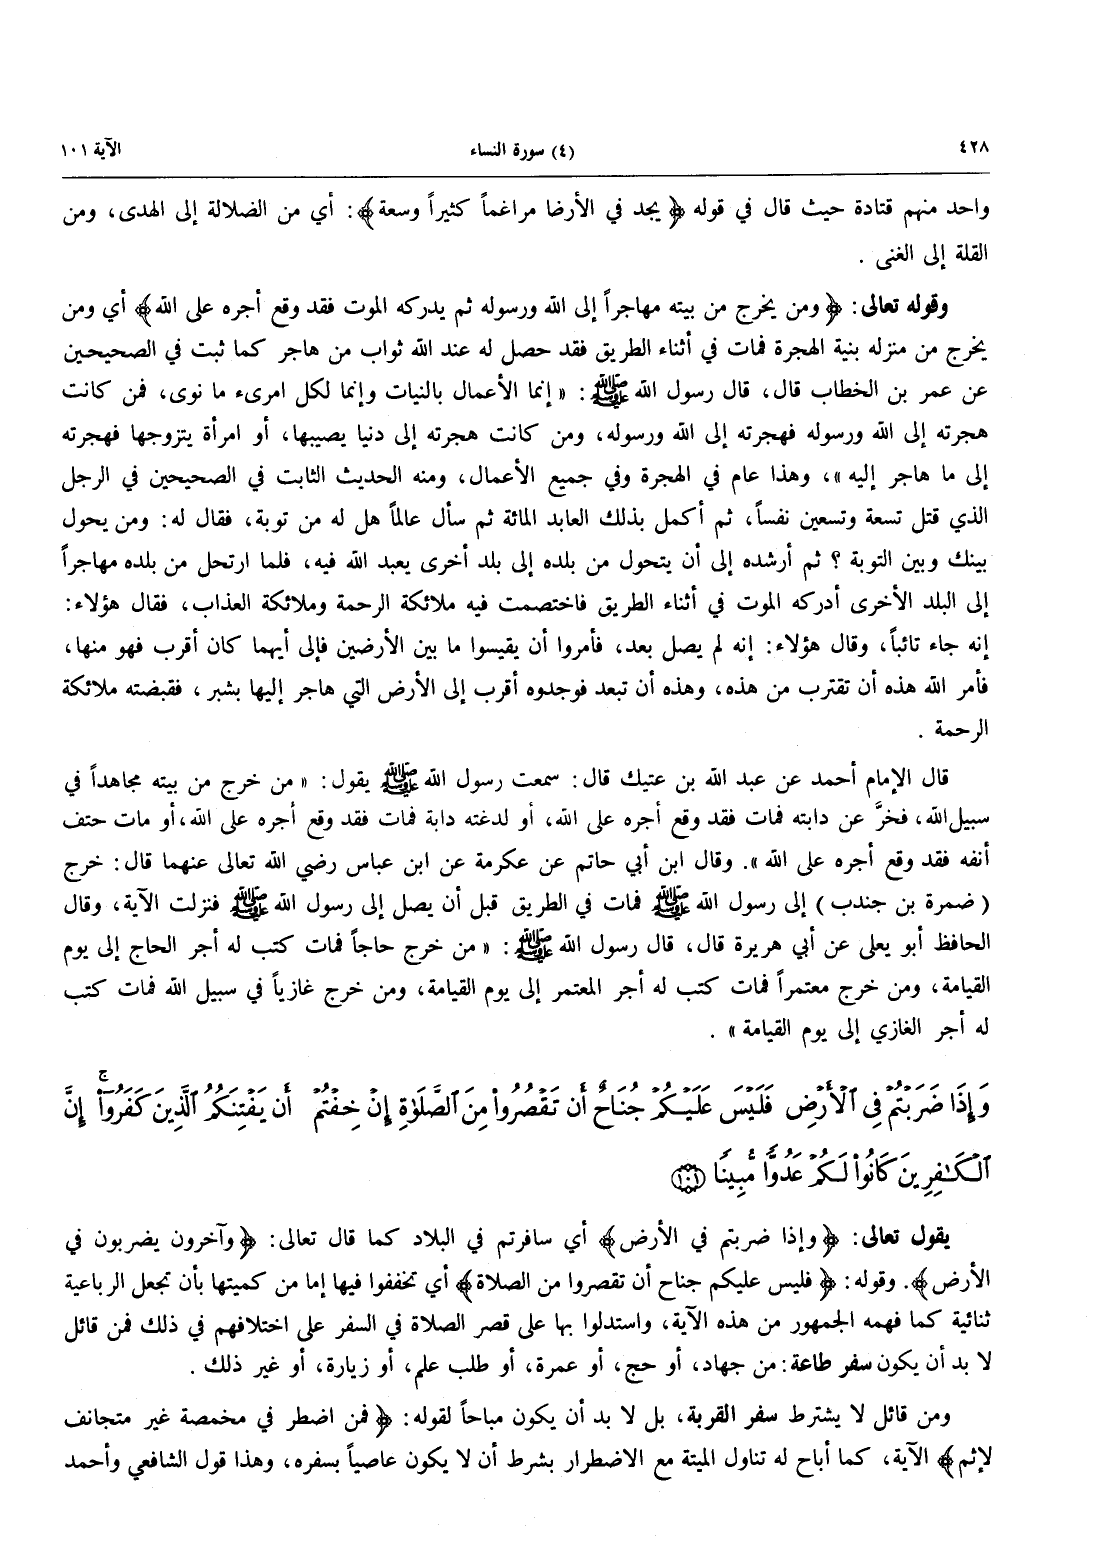 ٤٢٨ (٤) سورة النساء الآية ١٠١
واحد منهم قتادة حيث قال في قوله ﴿يجد في الأرضا مراغماً كثيراً وسعة﴾: أي من الضلالة إلى الهدى، ومن
القلة إلى الغنى .
وقوله تعالى: ﴿ومن يخرج من بيته مهاجراً إلى الله ورسوله ثم يدركه الموت فقد وقع أجره على الله﴾ أي ومن
يخرج من منزله بنية الهجرة فمات في أثناء الطريق فقد حصل له عند الله ثواب من هاجر كما ثبت في الصحيحين
عن عمر بن الخطاب قال، قال رسول الله ﷺ: « إنما الأعمال بالنيات وإنما لكل امرىء ما نوى، فمن كانت
هجرته إلى الله ورسوله فهجرته إلى الله ورسوله، ومن كانت هجرته إلى دنيا يصيبها، أو امرأة يتزوجها فهجرته
إلى ما هاجر إليه »، وهذا عام في الهجرة وفي جميع الأعمال، ومنه الحديث الثابت في الصحيحين في الرجل
الذي قتل تسعة وتسعين نفساً، ثم أكمل بذلك العابد المائة ثم سأل عالماً هل له من توبة، فقال له: ومن يحول
بينك وبين التوبة ؟ ثم أرشده إلى أن يتحول من بلده إلى بلد أخرى يعبد الله فيه، فلما ارتحل من بلده مهاجراً
إلى البلد الأخرى أدركه الموت في أثناء الطريق فاختصمت فيه ملائكة الرحمة وملائكة العذاب، فقال هؤلاء:
إنه جاء تائباً، وقال هؤلاء: إنه لم يصل بعد، فأمروا أن يقيسوا ما بين الأرضين فإلى أيهما كان أقرب فهو منها،
فأمر الله هذه أن تقترب من هذه، وهذه أن تبعد فوجدوه أقرب إلى الأرض التي هاجر إليها بشبر ، فقبضته ملائكة
الرحمة .
قال الإمام أحمد عن عبد الله بن عتيك قال: سمعت رسول الله ﷺ يقول: « من خرج من بيته مجاهداً في
سبيل الله، فخرَّ عن دابته فمات فقد وقع أجره على الله، أو لدغته دابة فمات فقد وقع أجره على الله، أو مات حتف
أنفه فقد وقع أجره على الله ». وقال ابن أبي حاتم عن عكرمة عن ابن عباس رضي الله تعالى عنهما قال: خرج
( ضمرة بن جندب ) إلى رسول الله ﷺ فمات في الطريق قبل أن يصل إلى رسول الله ﷺ فنزلت الآية، وقال
الحافظ أبو يعلى عن أبي هريرة قال، قال رسول الله ﷺ: « من خرج حاجاً فمات كتب له أجر الحاج إلى يوم
القيامة، ومن خرج معتمراً فمات كتب له أجر المعتمر إلى يوم القيامة، ومن خرج غازياً في سبيل الله فمات كتب
له أجر الغازي إلى يوم القيامة » .
وَإِذَا ضَرَبْتُمْ فِي ٱلْأَرْضِ فَلَيْسَ عَلَيْكُمْ جُنَاحٌ أَن تَقْصُرُوا۟ مِنَ ٱلصَّلَوٰةِ إِنْ خِفْتُمْ أَن يَفْتِنَكُمُ ٱلَّذِينَ كَفَرُوٓا۟ ۚ إِنَّ
ٱلْكَـٰفِرِينَ كَانُوا۟ لَكُمْ عَدُوًّا مُّبِينًا ١٠١
يقول تعالى: ﴿وإذا ضربتم في الأرض﴾ أي سافرتم في البلاد كما قال تعالى: ﴿وآخرون يضربون في
الأرض﴾. وقوله: ﴿فليس عليكم جناح أن تقصروا من الصلاة﴾ أي تخففوا فيها إما من كميتها بأن تجعل الرباعية
ثنائية كما فهمه الجمهور من هذه الآية، واستدلوا بها على قصر الصلاة في السفر على اختلافهم في ذلك فمن قائل
لا بد أن يكون سفر طاعة: من جهاد، أو حج، أو عمرة، أو طلب علم، أو زيارة، أو غير ذلك .
ومن قائل لا يشترط سفر القربة، بل لا بد أن يكون مباحاً لقوله: ﴿فمن اضطر في مخمصة غير متجانف
لإثم﴾ الآية، كما أباح له تناول الميتة مع الاضطرار بشرط أن لا يكون عاصياً بسفره، وهذا قول الشافعي وأحمد